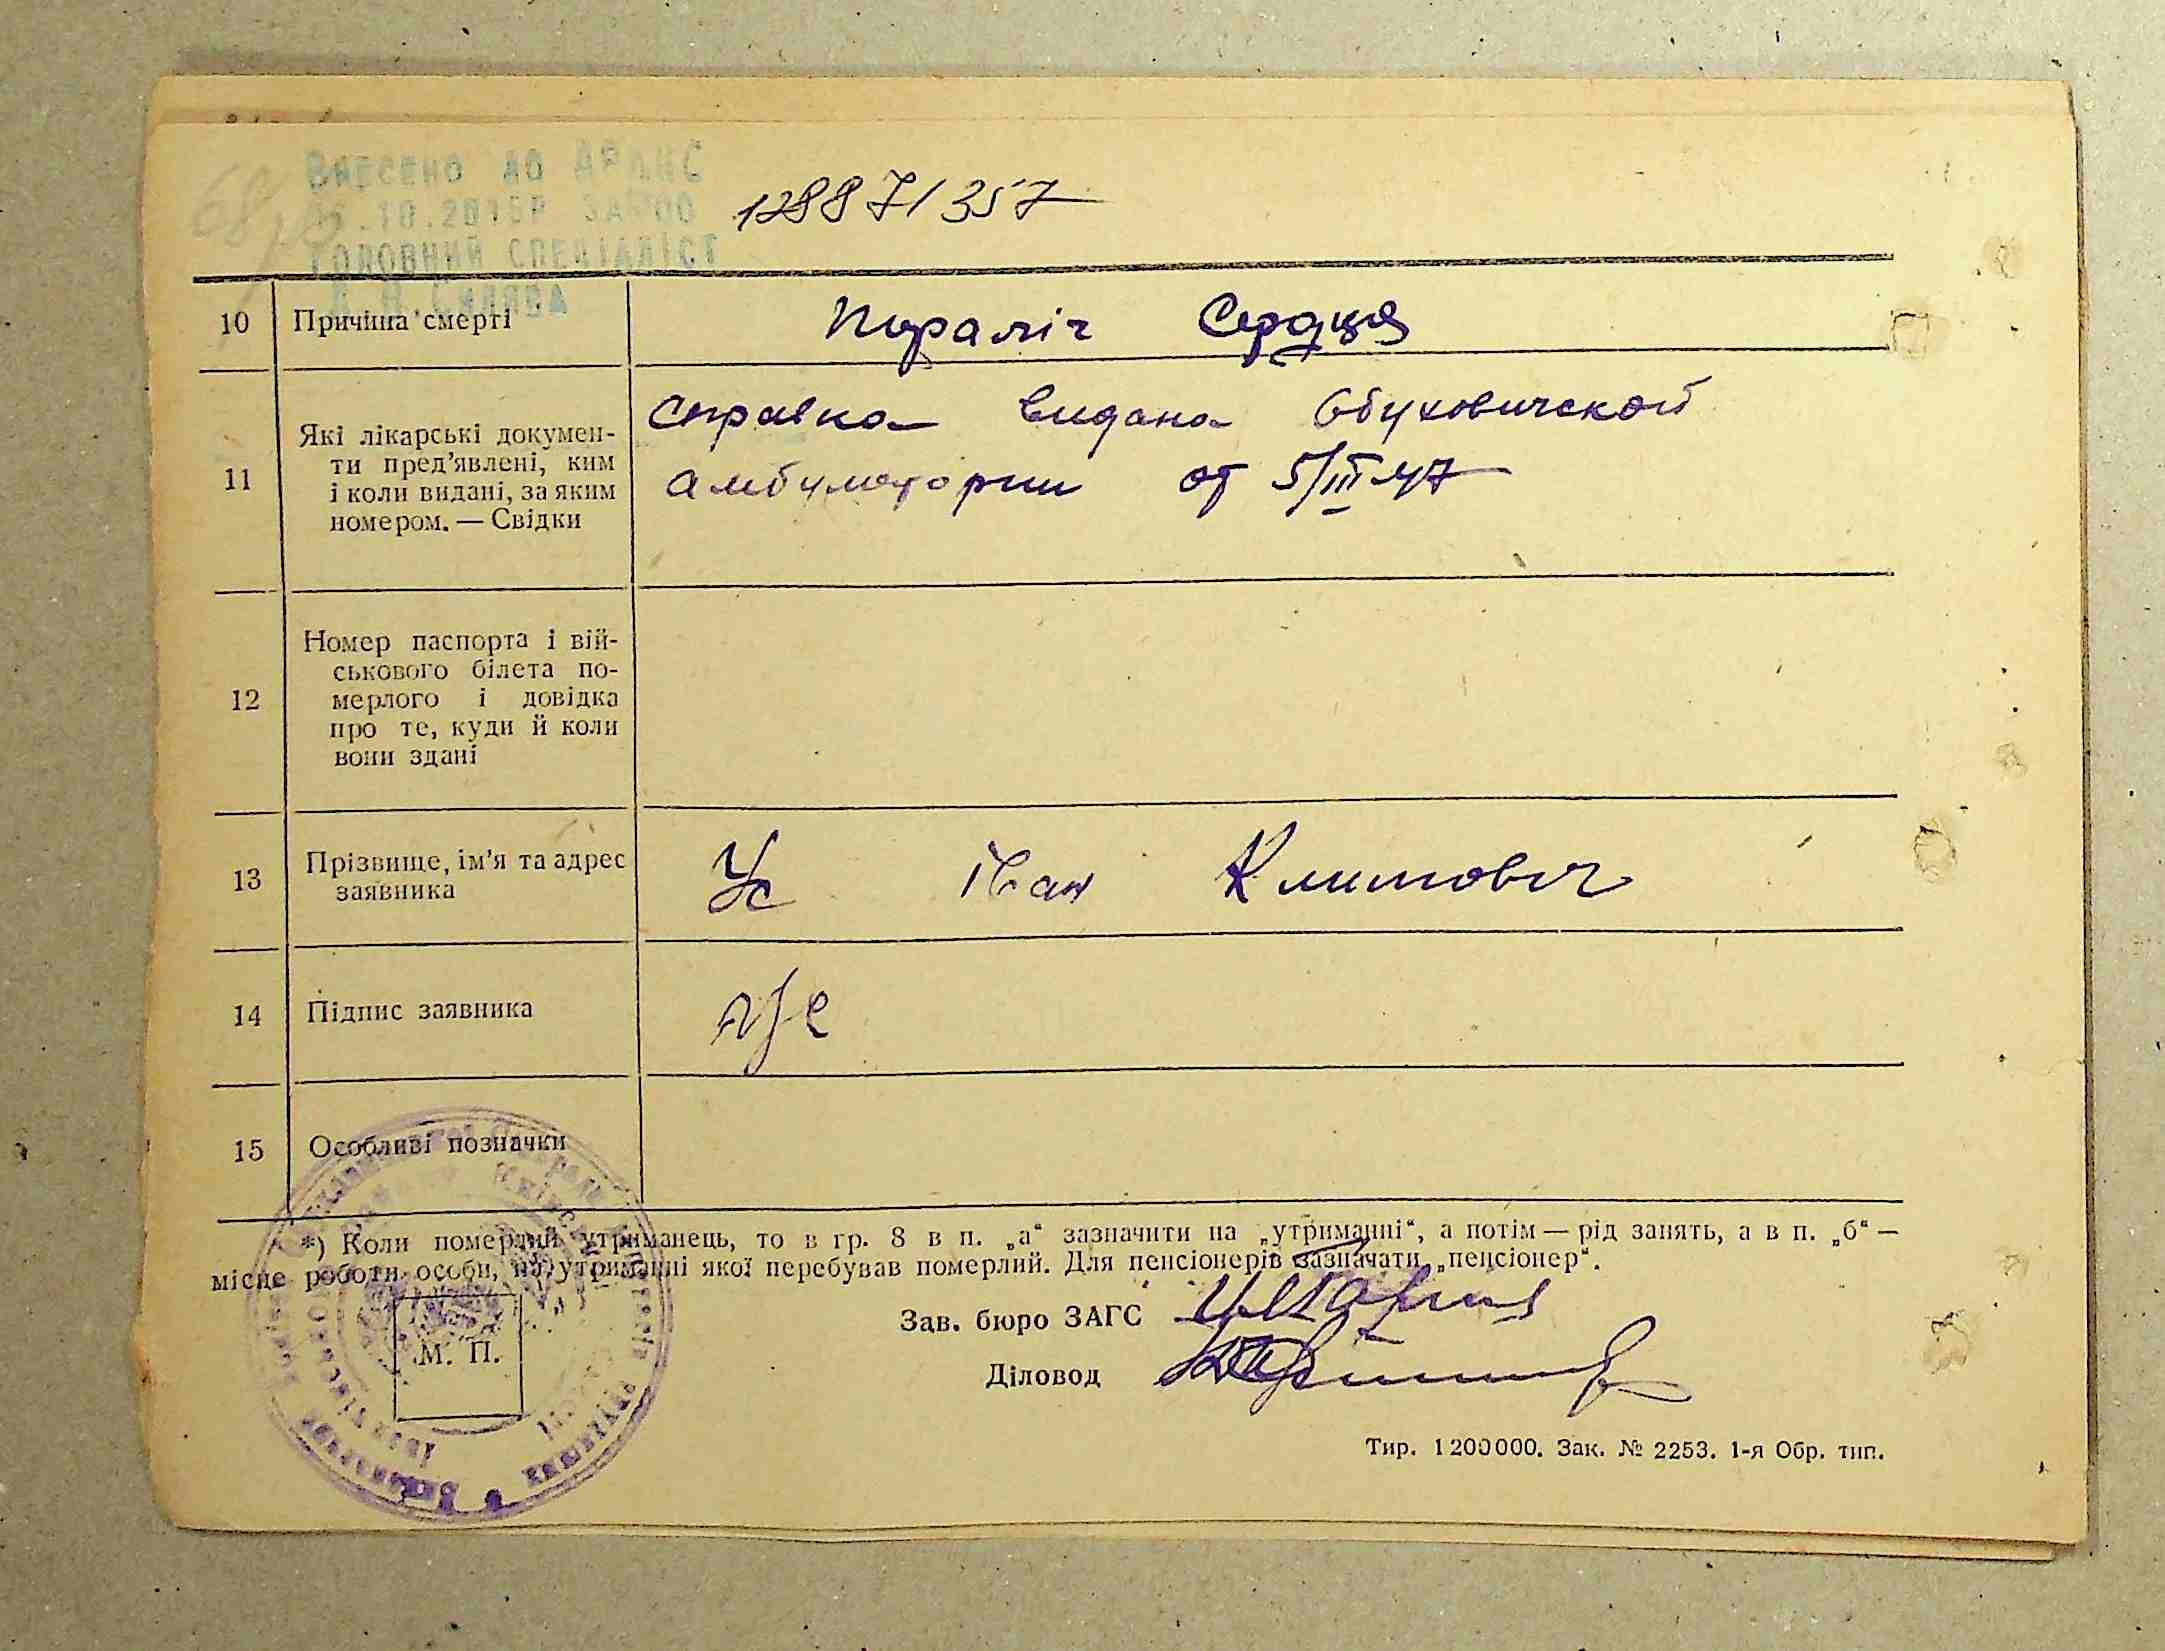 Внесено до ДРАЦС
.10.2015р
Головний спеціаліст
12887/357
10 Причина смерті Параліч Сердця
11 Які лікарські докумен-
ти пред'явлені, ким
і коли видані, за яким
номером. — Свідки
Справка видана Обуховичской
амбулатории от 5/III 47
12 Номер паспорта і вій-
ськового білета по-
мерлого і довідка
про те, куди й коли
вони здані
13 Прізвище, ім'я та адрес
заявника
Ус Іван Климович
14 Підпис заявника Ус
15 Особливі позначки
*) Коли померлий утриманець, то в гр. 8 в п. „а“ зазначити на „утриманні“, а потім — рід занять, а в п. „б“ —
місце роботи особи, на утриманні якої перебував померлий. Для пенсіонерів зазначати „пенсіонер“.
Зав. бюро ЗАГС
Діловод
М. П.
Тир. 1200000. Зак. № 2253. 1-я Обр. тип.